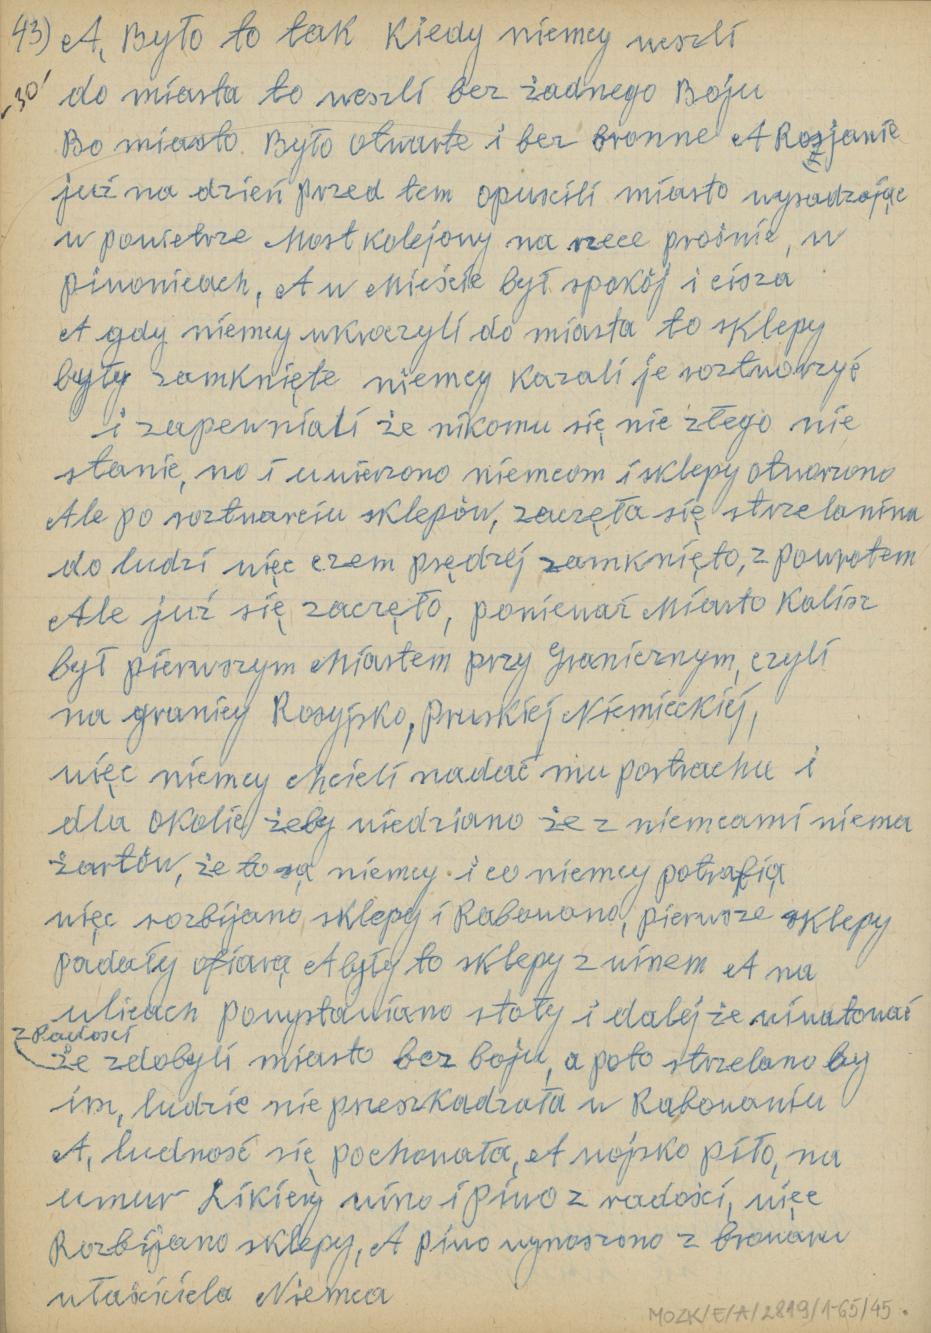 43) A, Było to tak Kiedy niemcy weszli
-30'
do miasta to weszli bez żadnego Boju
Bo miasto Było otwarte i bez bronne A Rosjanie
już na dzień przed tem opuscili miasto wysadzając
w powietrze Most kolejowy na rzece prośnie, w
piwonicach, A w Mieście był spokój i cisza
A gdy niemcy wkroczyli do miasta to sklepy
były zamknięte niemcy kazali je roztworzyć
i zapewniali że nikomu się nic złego nie
stanie, no i uwierzono niemcom i sklepy otworzono
Ale po roztwarciu sklepów, zaczęła się strzelanina
do ludzi więc czem prędzej zamknięto, z powrotem
Ale już się zaczęło, ponieważ Miasto Kalisz
był pierwszym Miastem przy Granicznym, czyli
na granicy Rosyjsko, pruskiej Niemieckiej,
więc niemcy chcieli nadać mu postrachu i
dla okolic, żeby wiedziano że z niemcami niema
żartów, że to są niemcy i co niemcy potrafią
więc rozbijano, sklepy i Rabowano, pierwsze sklepy
padały ofiarą A były to sklepy z winem A na
ulicach powystawiano stoły i dalej że wiwatować
z Radości
że zdobyli miasto bez boju, a poto strzelano by
im, ludzie nie przeszkadzała w Rabowaniu
A, ludność się pochowała, A wojsko piło, na
umur Likiery wino i piwo z radości, więc
Rozbijano sklepy, A piwo wynoszono z browaru
właściciela Niemca
MOZK/E/A/2819/1-65/45.